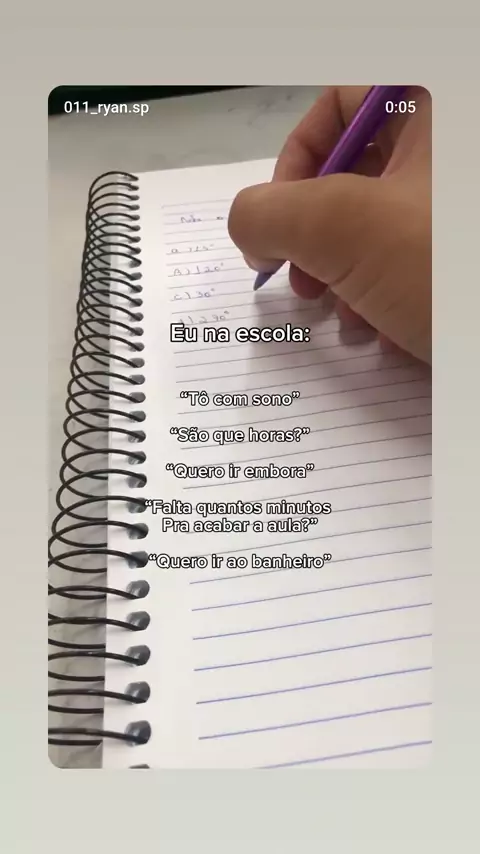 011_ryan.sp
0:05
A) 120°
c) 30°
Eu na escola:
“Tô com sono”
“São que horas?”
“Quero ir embora”
“Falta quantos minutos
Pra acabar a aula?”
“Quero ir ao banheiro”